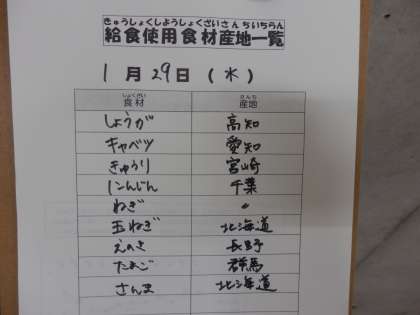 きゅうしょくしようしょくざいさんちいちらん
給食使用食材産地一覧
1月29日(水)
しょくざい さんち
食材 産地
しょうが 高知
キャベツ 愛知
きゅうり 宮崎
にんじん 千葉
ねぎ 〃
玉ねぎ 北海道
えのき 長野
たまご 群馬
さんま 北海道